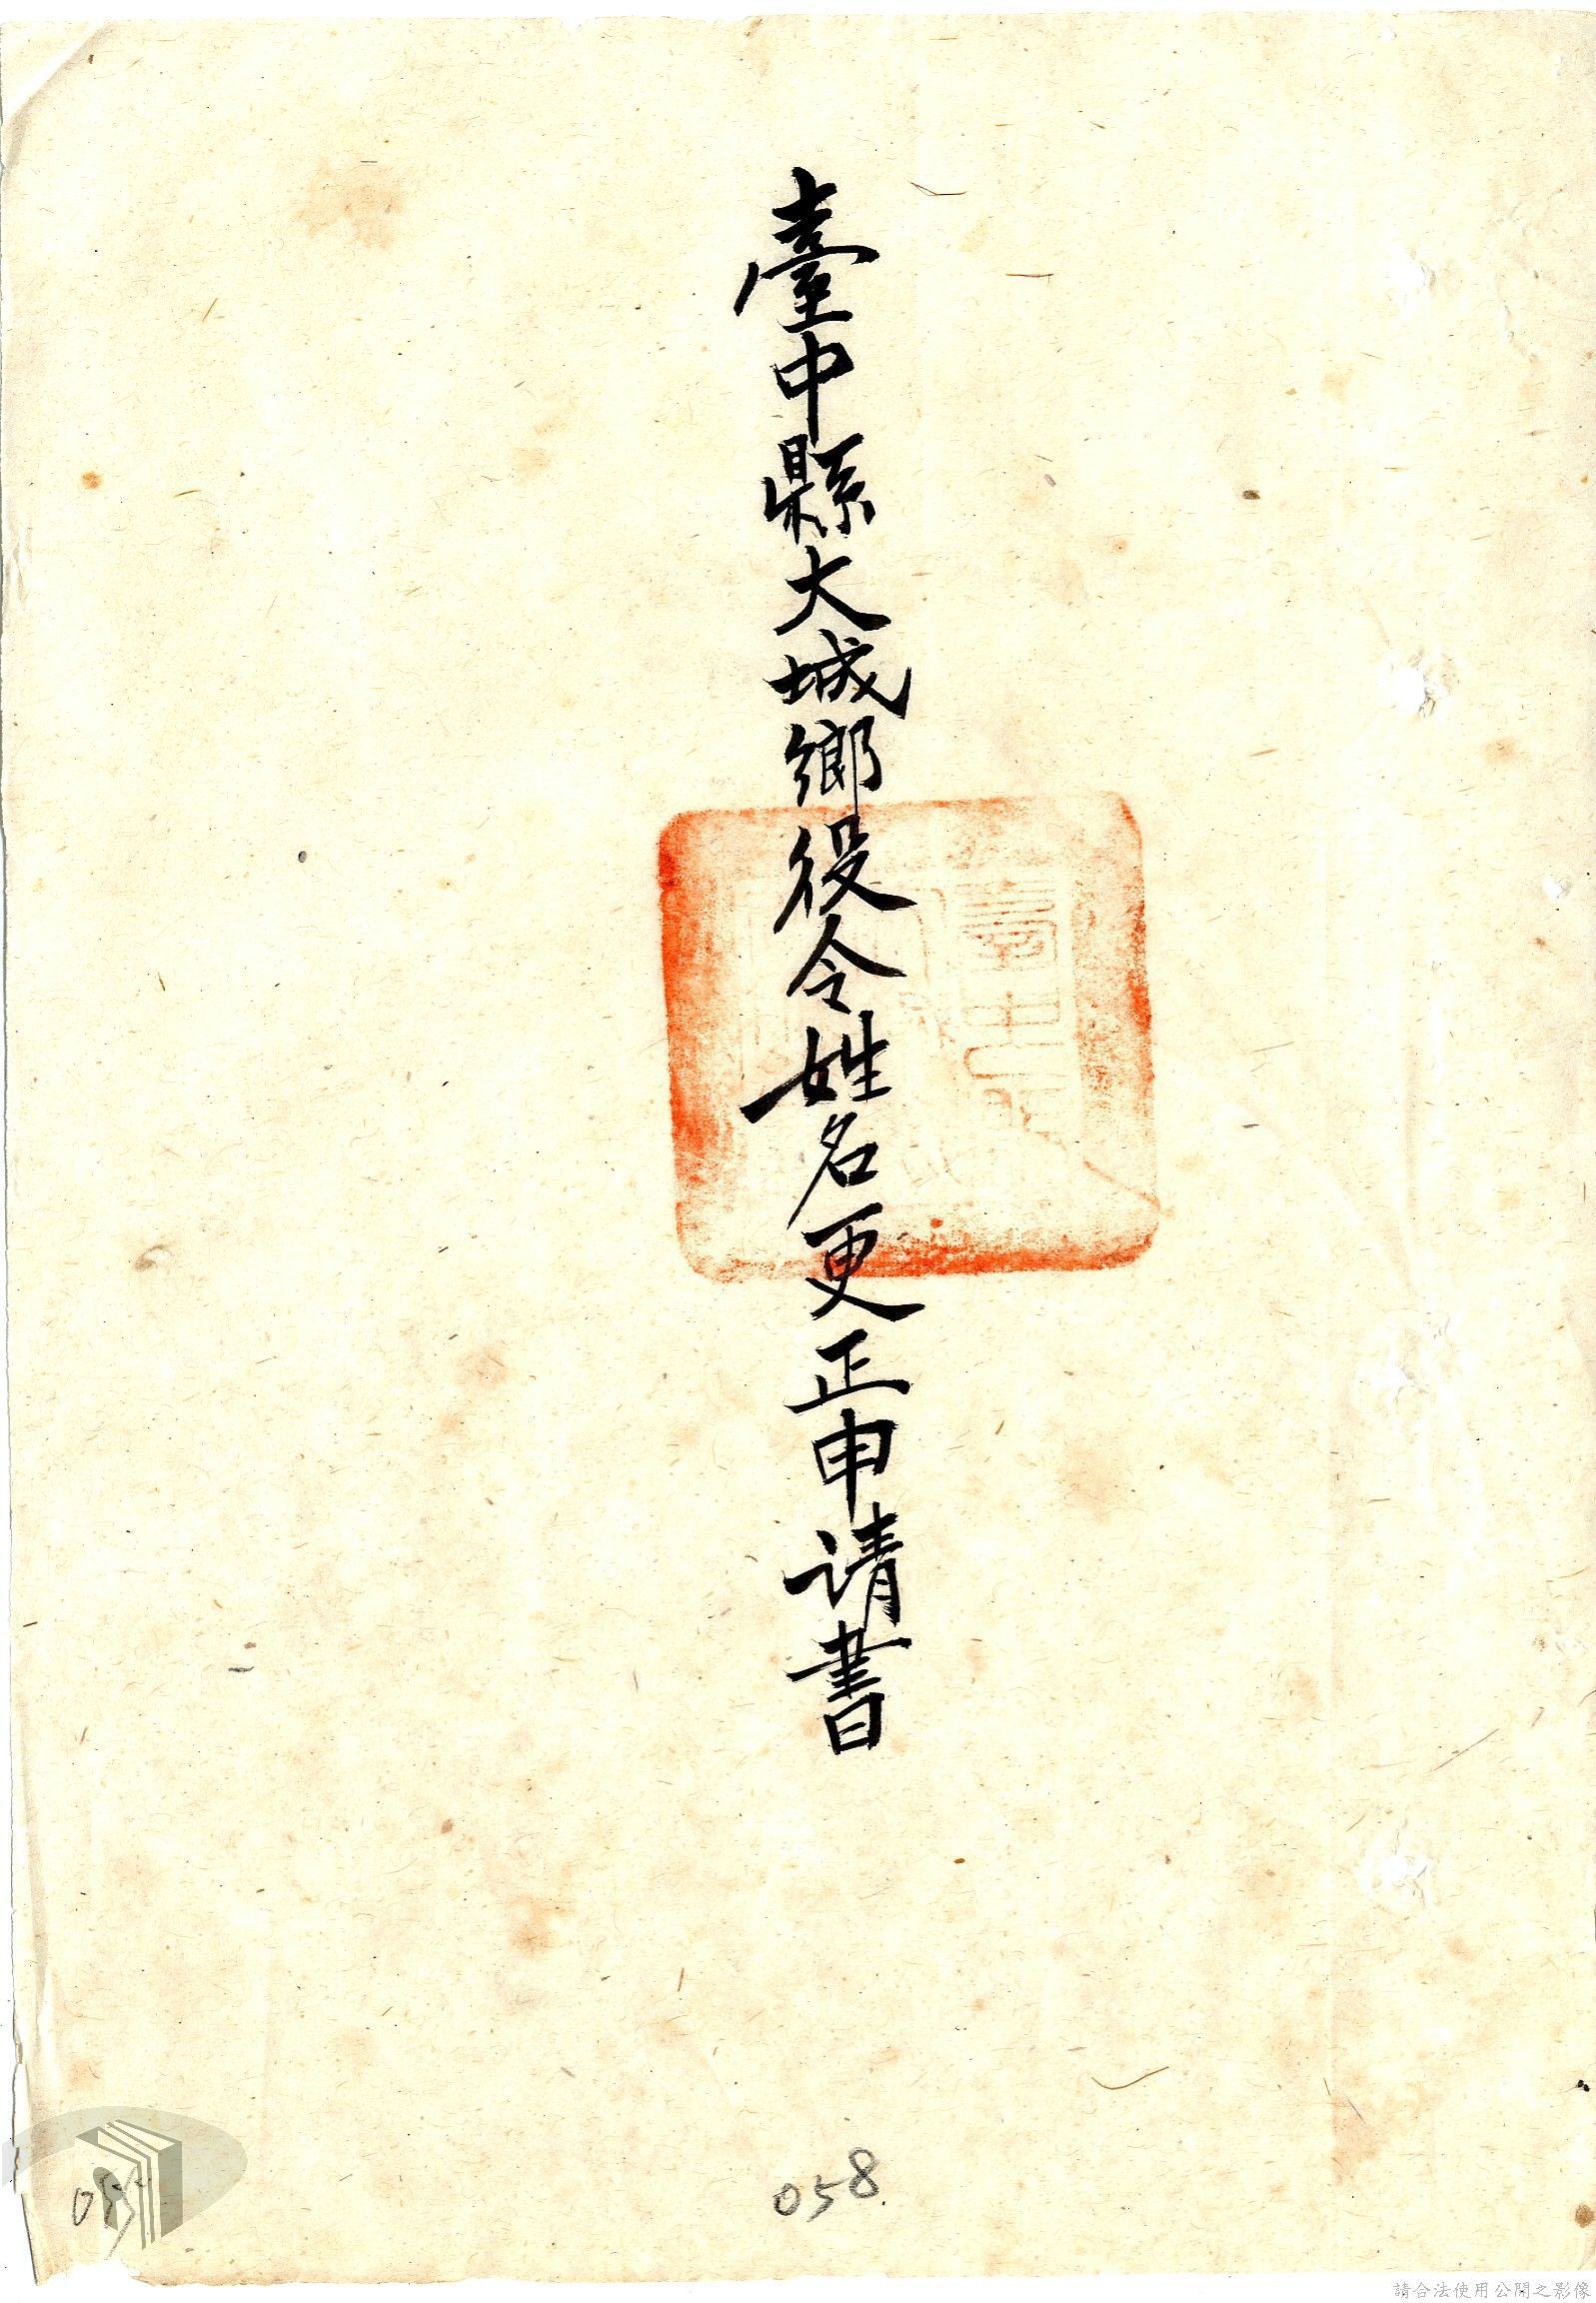 臺中縣大城鄉役令姓名更正申请書
058
請合法使用公開之影像